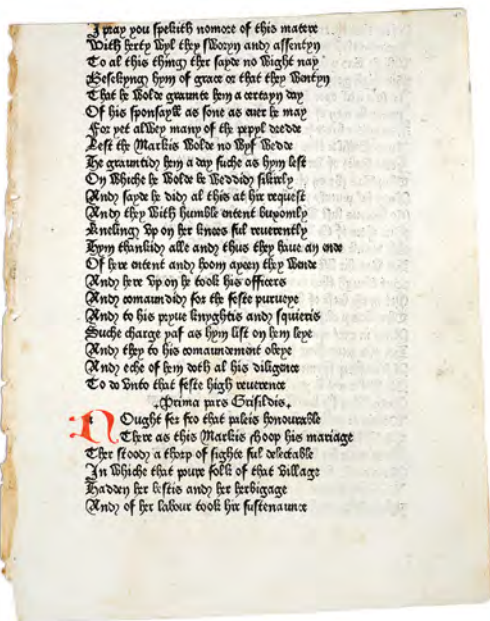 I pray you spekith nomore of this matere
With herty wyl they sworyn and assentyn
To al this thing ther sayde no wight nay
Besekyng hym of grace or that they wentyn
That he wolde graunte hem a certayn day
Of his sponsayll as sone as euer he may
For yet alwey many of the pepyl dredde
Lest the Markis wolde no wyf wedde
He grauntid hem a day suche as hym lest
On whiche he wolde be weddid sikirly
And sayde he did al this at her request
And they with humble entent buxomly
Kneling vp on her knees ful reuerently
Hym thankid alle and thus they haue an ende
Of here entent and hoom ayen they wende
And here vp on he took his officers
And comaundid for the feste purueye
And to his pryue knyghtis and squieris
Suche charge yaf as hym list on hem leye
And they to his comaundement obeye
And eche of hem doth al his diligence
To do vnto that feste high reuerence
Prima pars Grisildis
NOught fer fro that paleis honourable
There as this Markis shoop his mariage
Ther stood a thorp of sighte ful delectable
In whiche that poure folk of that village
Hadden her bestis and her herbigage
And of her labour took hir sustenaunce